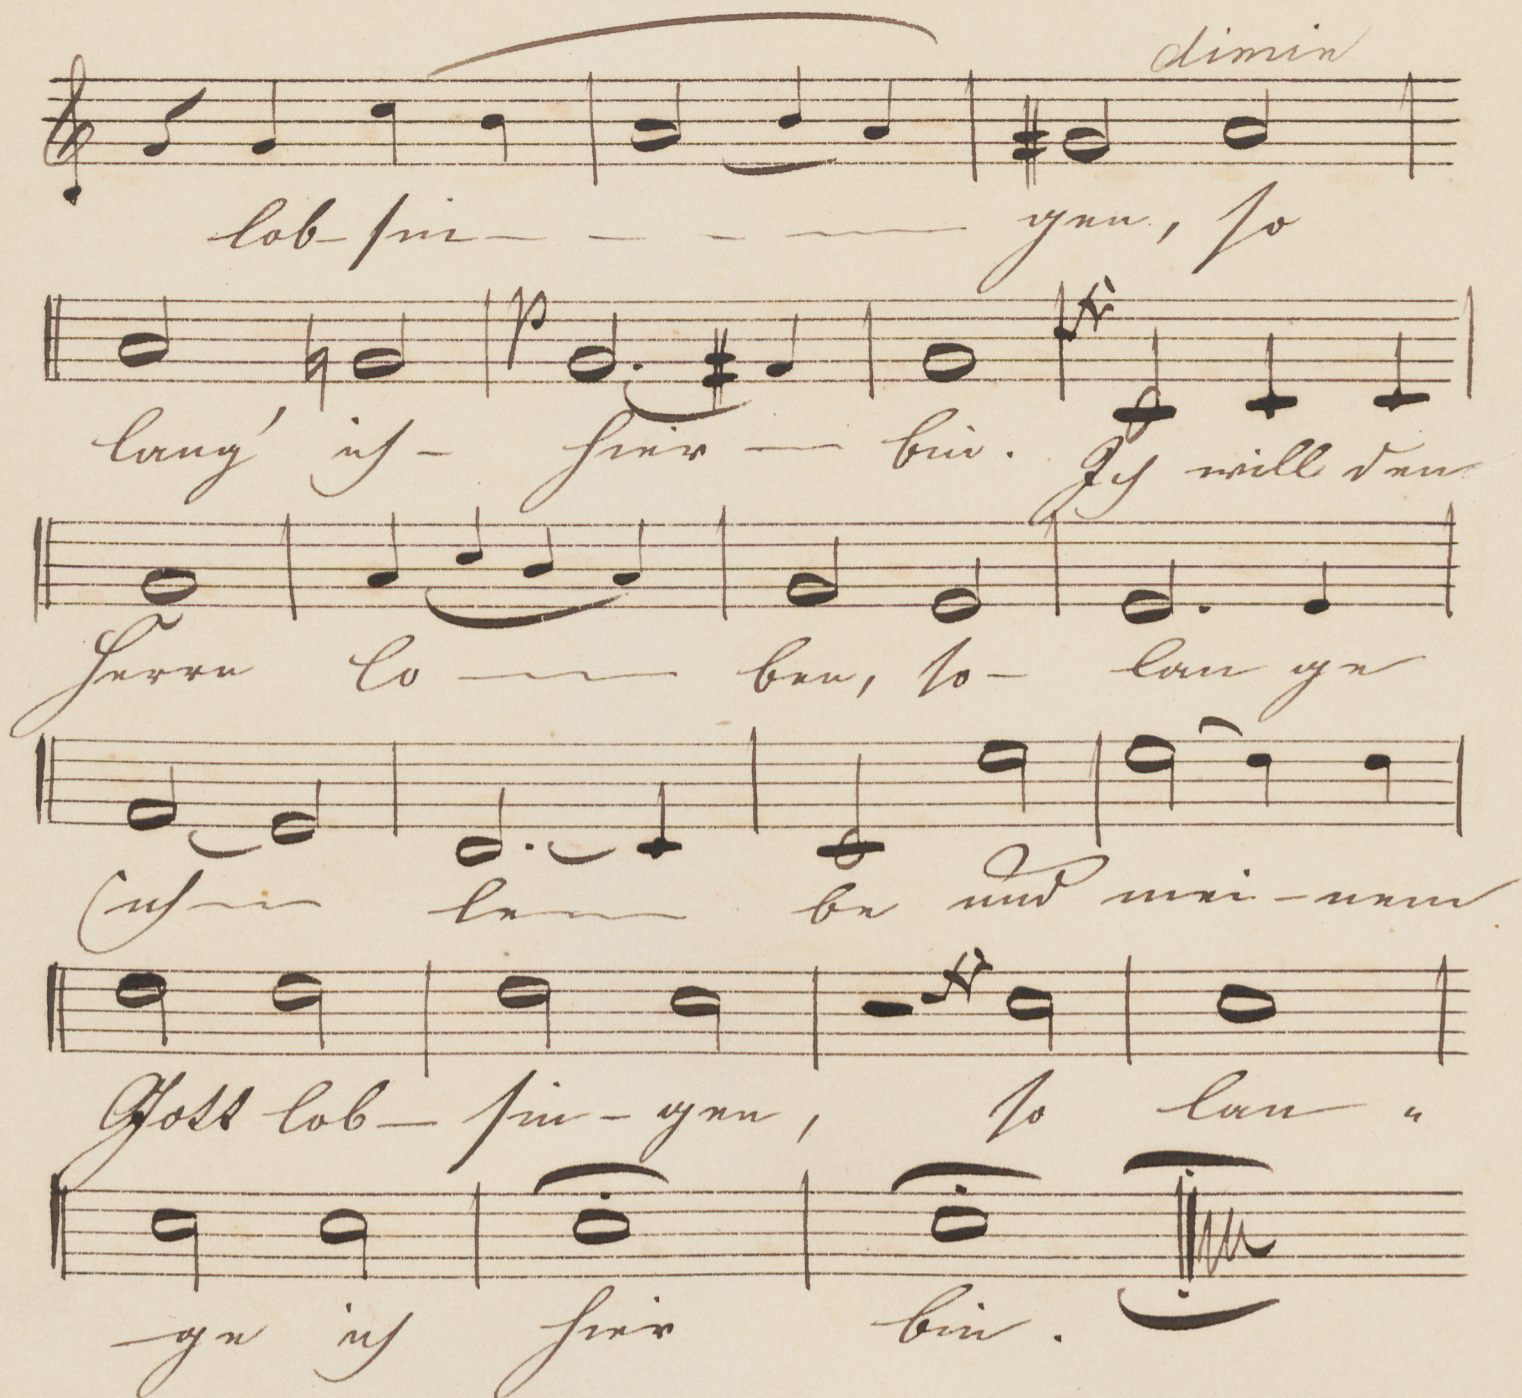 dimin
lob- sin - - - - gen, so
p
lang' ich - hier - bin. Ich will den
Herrn lo - ben, so - lan ge
ich - le - be und mei - nem
Gott lob - sin - gen, so lan "
- ge ich hier bin.